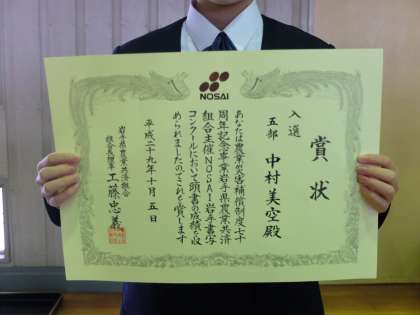 NOSAI
賞状
入選
五部 中村美空殿
あなたは農業災害補償制度七十
周年記念事業岩手県農業共済
組合主催NOSAI岩手書写
コンクールにおいて頭書の成績を収
められましたのでこれを賞します
平成二十九年十月五日
岩手県農業共済組合
組合長理事 工藤忠義